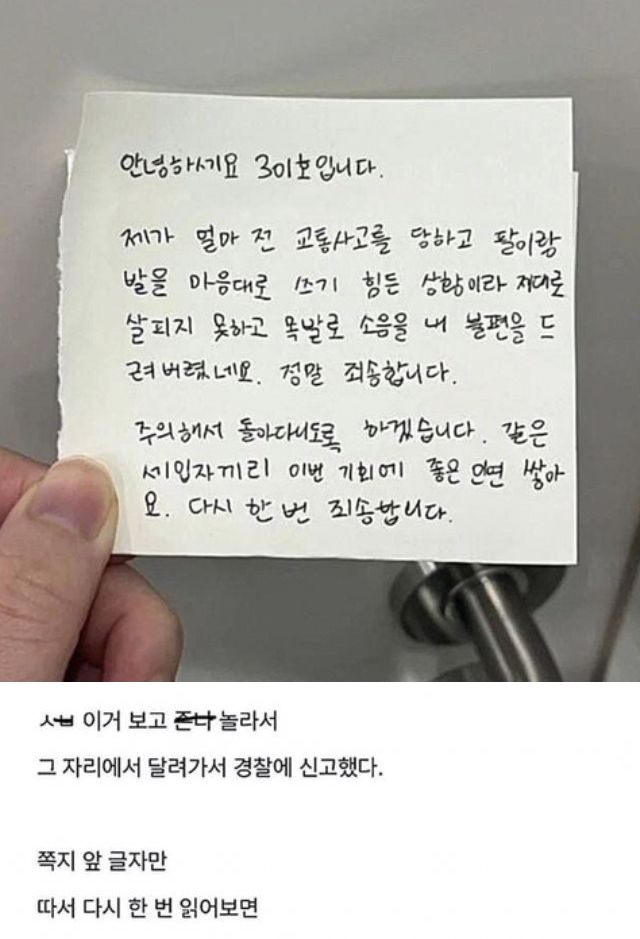 안녕하세요 301호입니다.
제가 얼마 전 교통사고를 당하고 팔이랑
발을 마음대로 쓰기 힘든 상황이라 제대로
살피지 못하고 목발로 소음을 내 불편을 드
려버렸네요. 정말 죄송합니다.
주의해서 돌아다니도록 하겠습니다. 같은
세입자끼리 이번 기회에 좋은 인연 쌓아
요. 다시 한 번 죄송합니다.
ㅅㅂ 이거 보고 존나 놀라서
그 자리에서 달려가서 경찰에 신고했다.
쪽지 앞 글자만
따서 다시 한 번 읽어보면